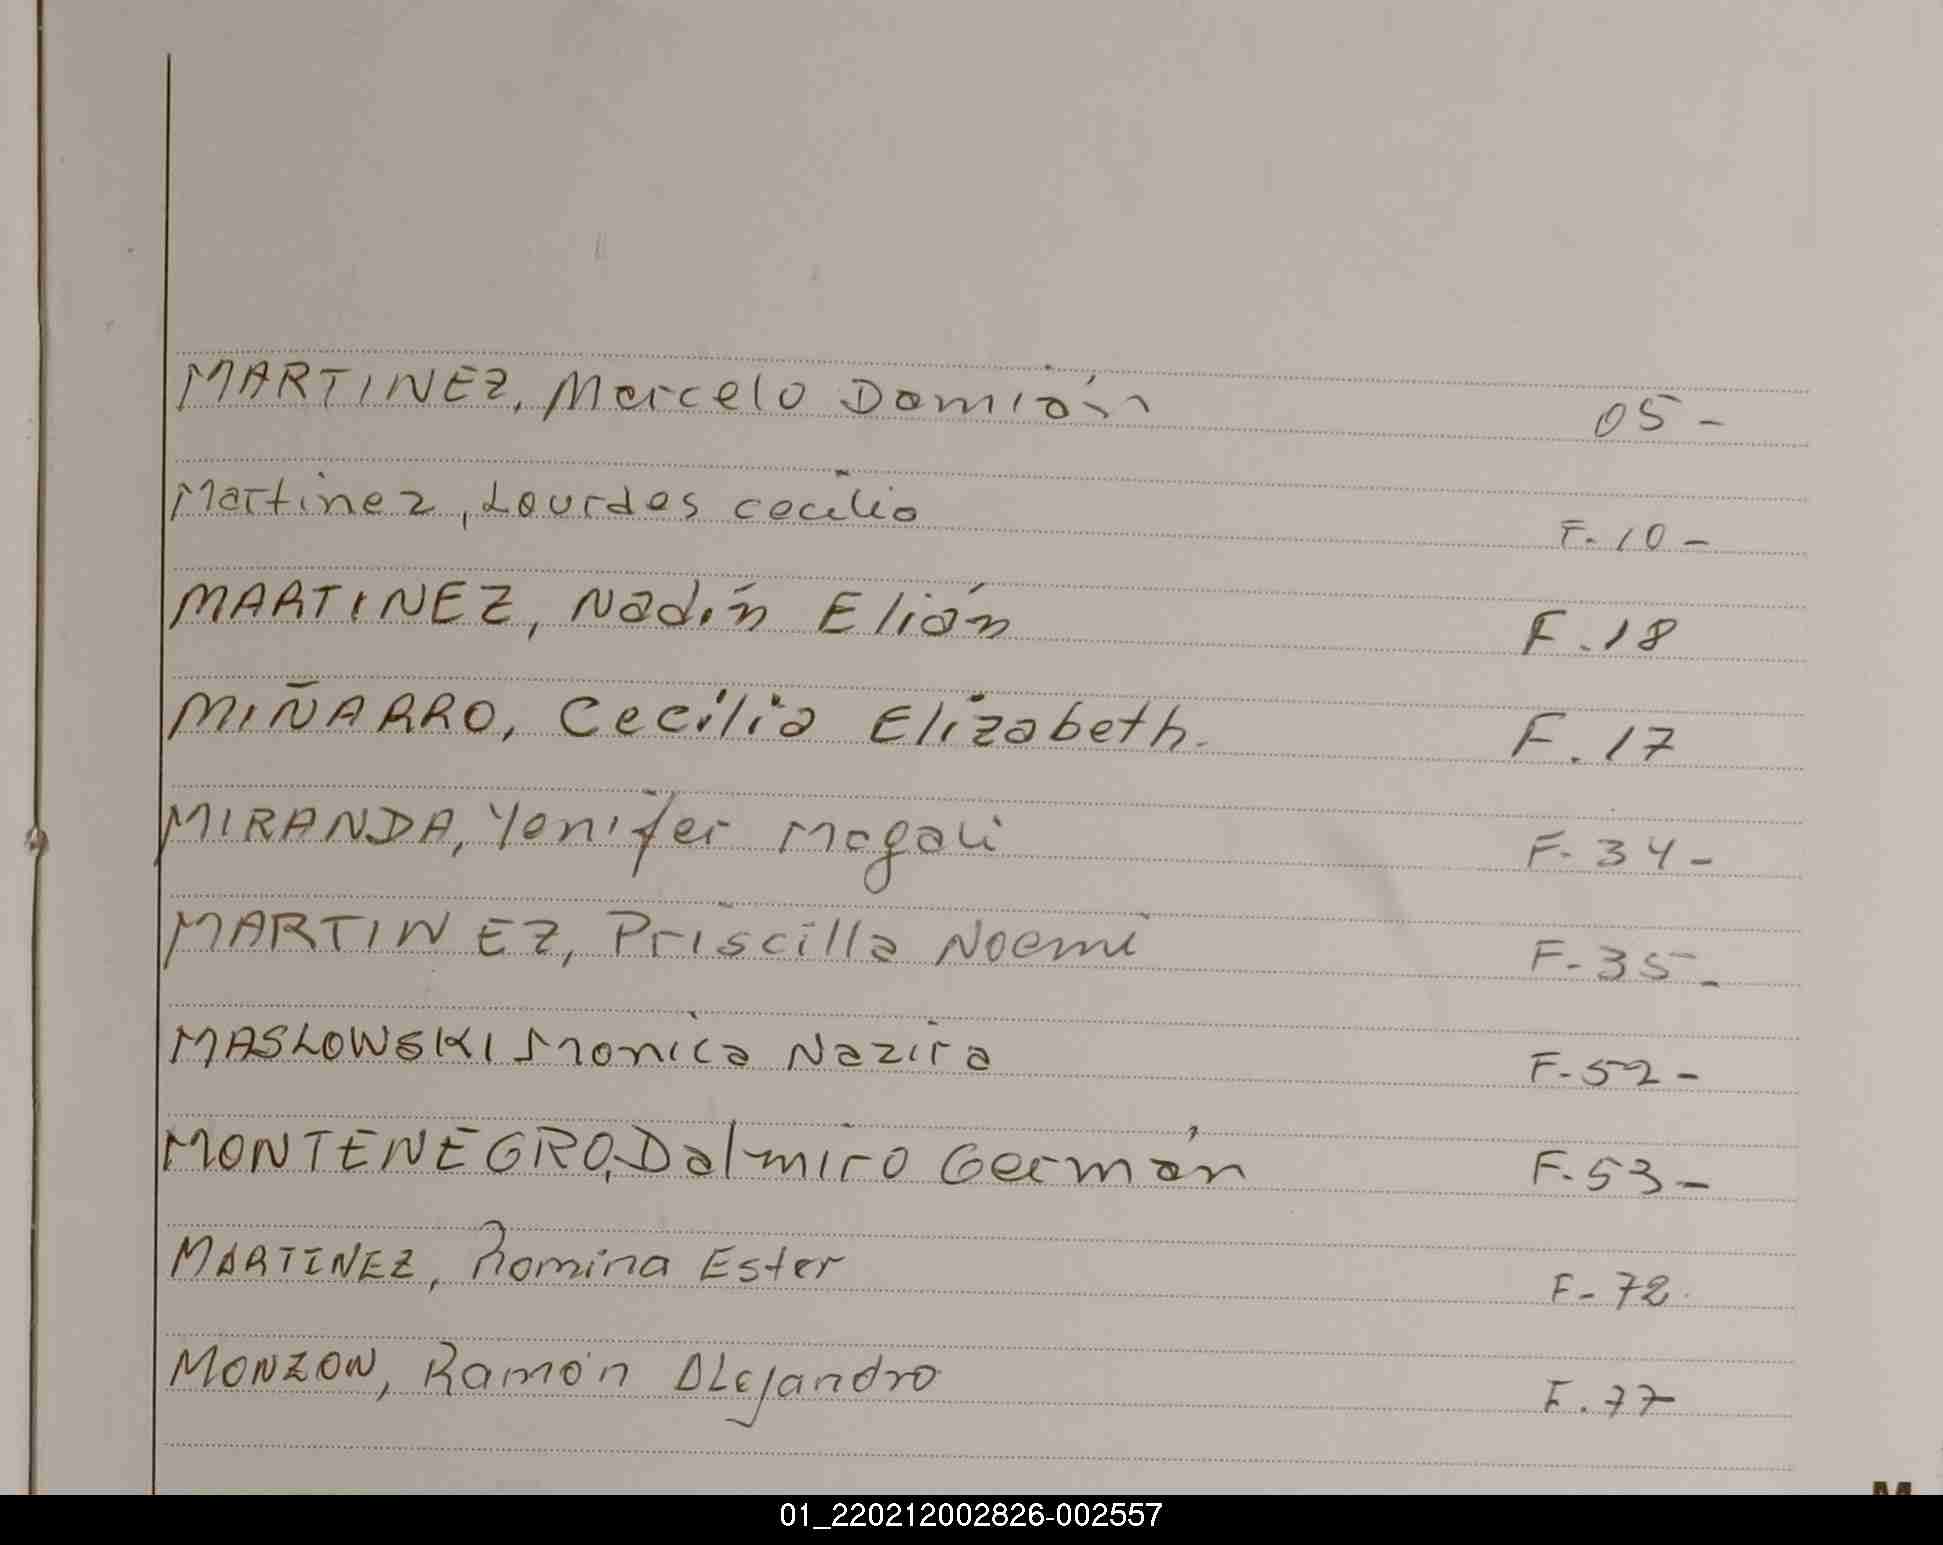 MARTINEZ, Marcelo Damián 05-
Martinez, Lourdes cecilia F.10-
MARTINEZ, Nadín Elián F.18
MIÑARRO, Cecilia Elizabeth. F.17
MIRANDA, Yenifer Magali F-34-
MARTINEZ, Priscilla Noemi F-35-
MASLOWSKI Monica Nazira F-52-
MONTENEGRO, Dalmiro Germán F-53-
MARTINEZ, Romina Ester F-72.
MONZON, Ramón Alejandro F.77
M
01_220212002826-002557